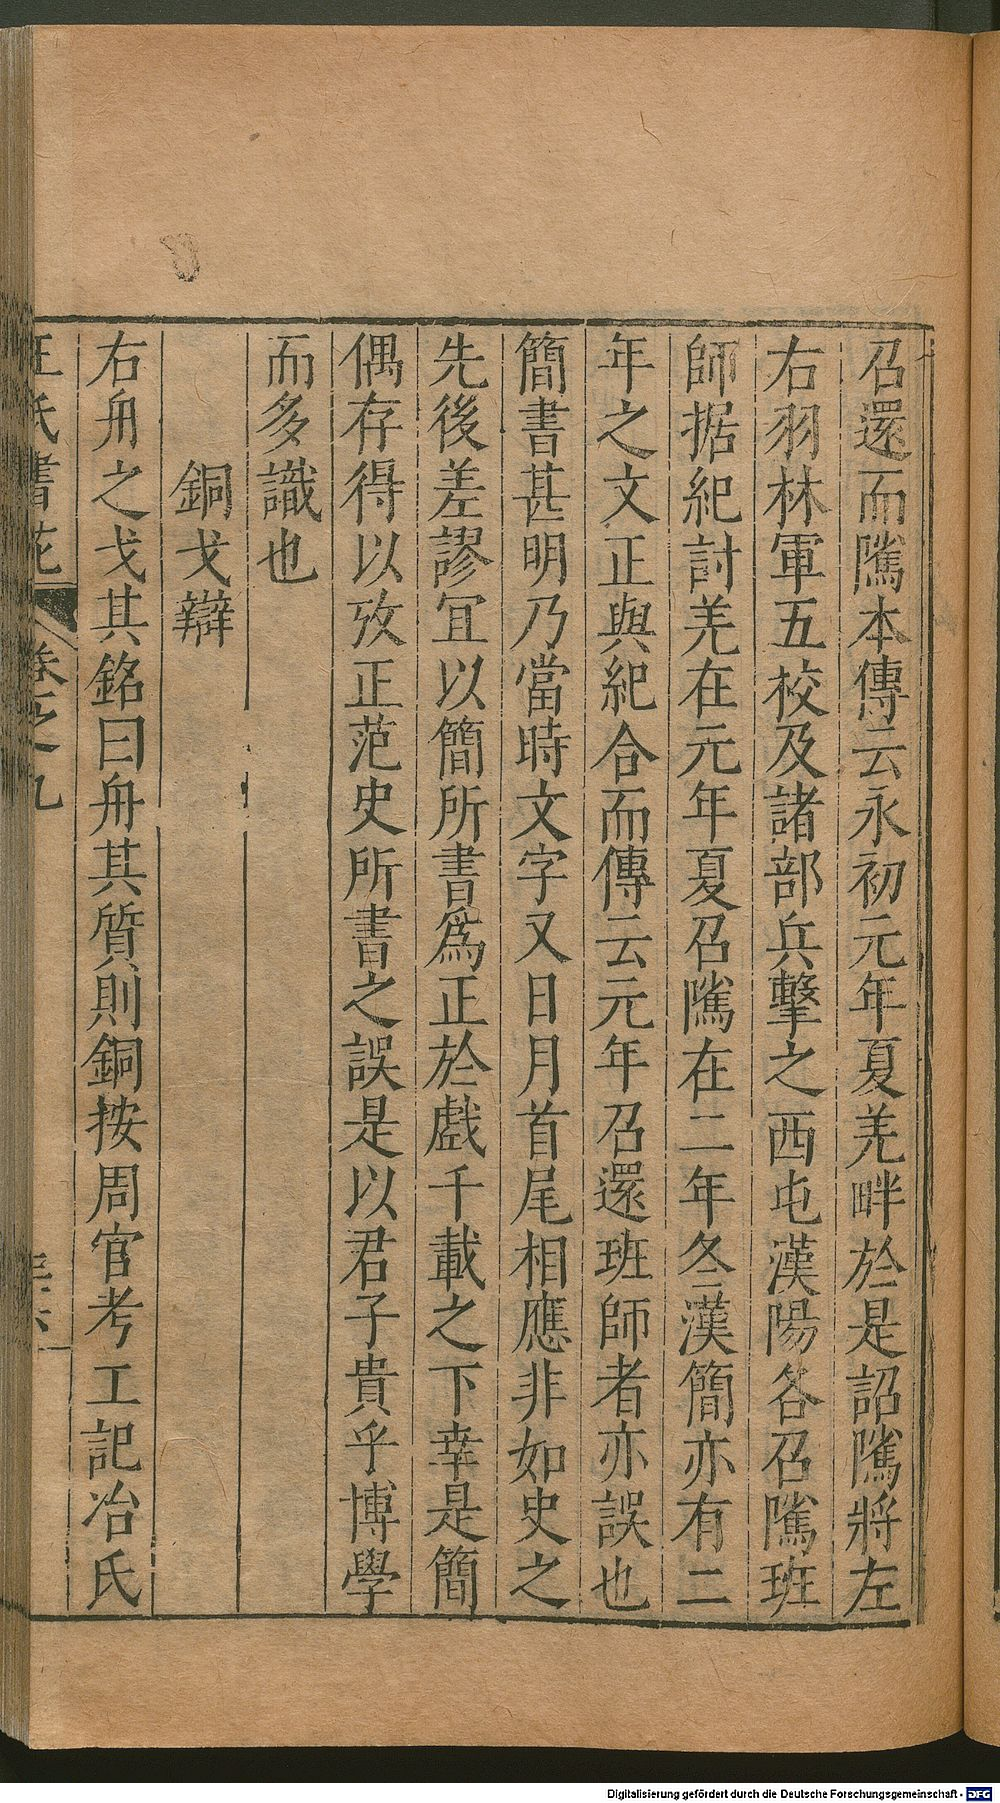 召還而隲本傳云永初元年夏羌畔於是詔隲將左
右羽林軍五校及諸部兵擊之西屯漢陽各召隲班
師据紀討羌在元年夏召隲在二年冬漢簡亦有二
年之文正與紀合而傳云元年召還班師者亦誤也
簡書甚明乃當時文字又日月首尾相應非如史之
先後差謬冝以簡所書爲正於戲千載之下幸是簡
偶存得以攷正范史所書之誤是以君子貴乎博學
而多識也
銅戈辯
右舟之戈其銘曰舟其質則銅按周官考工記冶氏
王氏書苑 卷之九
Digitalisierung gefördert durch die Deutsche Forschungsgemeinschaft - DFG